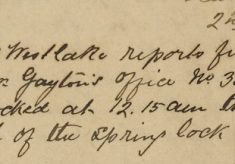 2
Westlake reports
Gayton's office No. 3
cked at 12.15 am th
of the Spring lock